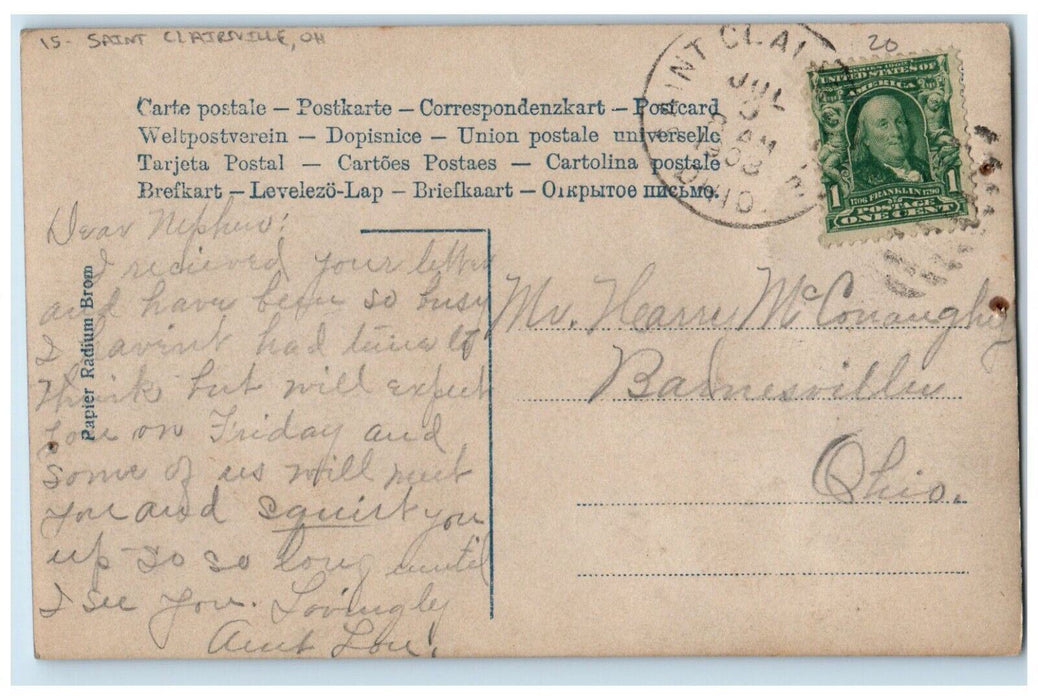 15- SAINT CLAIRVILLE, OH
20
SAINT CLAI
JUL
3
AM
08
OHIO.
SERIES 1902
UNITED STATES OF
AMERICA
1706 FRANKLIN 1790
1 POSTAGE 1
ONE CENT
Carte postale – Postkarte – Correspondenzkart – Postcard
Weltpostverein – Dopisnice – Union postale universelle
Tarjeta Postal – Cartões Postaes – Cartolina postale
Brefkart – Levelezö-Lap – Briefkaart – Открытое письмо.
Papier Radium Brom
Dear Nephew:
I recieved your letter
and have been so busy
I havint had time to
think but will expect
you on Friday and
some of us will meet
you and squirt you
up so so long until
I see you. Lovingly
Aunt Lou.
Mr. Harry McConaughy
Barnesville
Ohio.